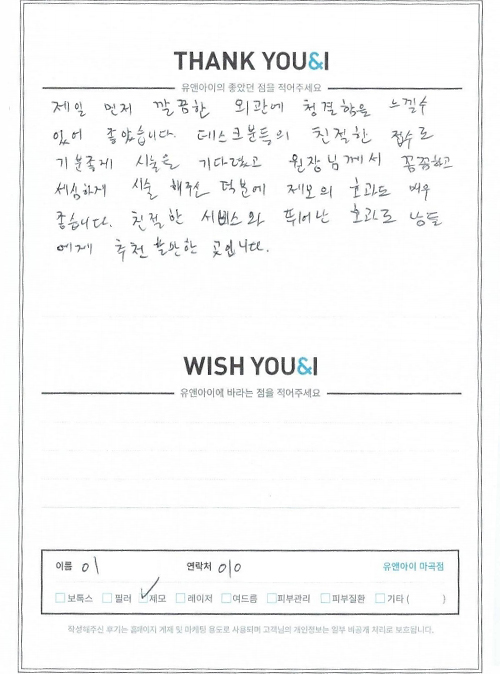 THANK YOU&I
유앤아이의 좋았던 점을 적어주세요
제일 먼저 깔끔한 외관에 청결함을 느낄수
있어 좋았습니다. 데스크분들의 친절한 접수로
기분좋게 시술을 기다렸고 원장님께서 꼼꼼하고
세심하게 시술 해주신 덕분에 제모의 효과도 매우
좋습니다. 친절한 서비스와 뛰어난 효과로 남들
에게 추천 할만한 곳입니다.
WISH YOU&I
유앤아이에 바라는 점을 적어주세요
이름 이 연락처 010 유앤아이 마곡점
보톡스 필러 제모 레이저 여드름 피부관리 피부질환 기타 ( )
작성해주신 후기는 홈페이지 게재 및 마케팅 용도로 사용되며 고객님의 개인정보는 일부 비공개 처리로 보호됩니다.